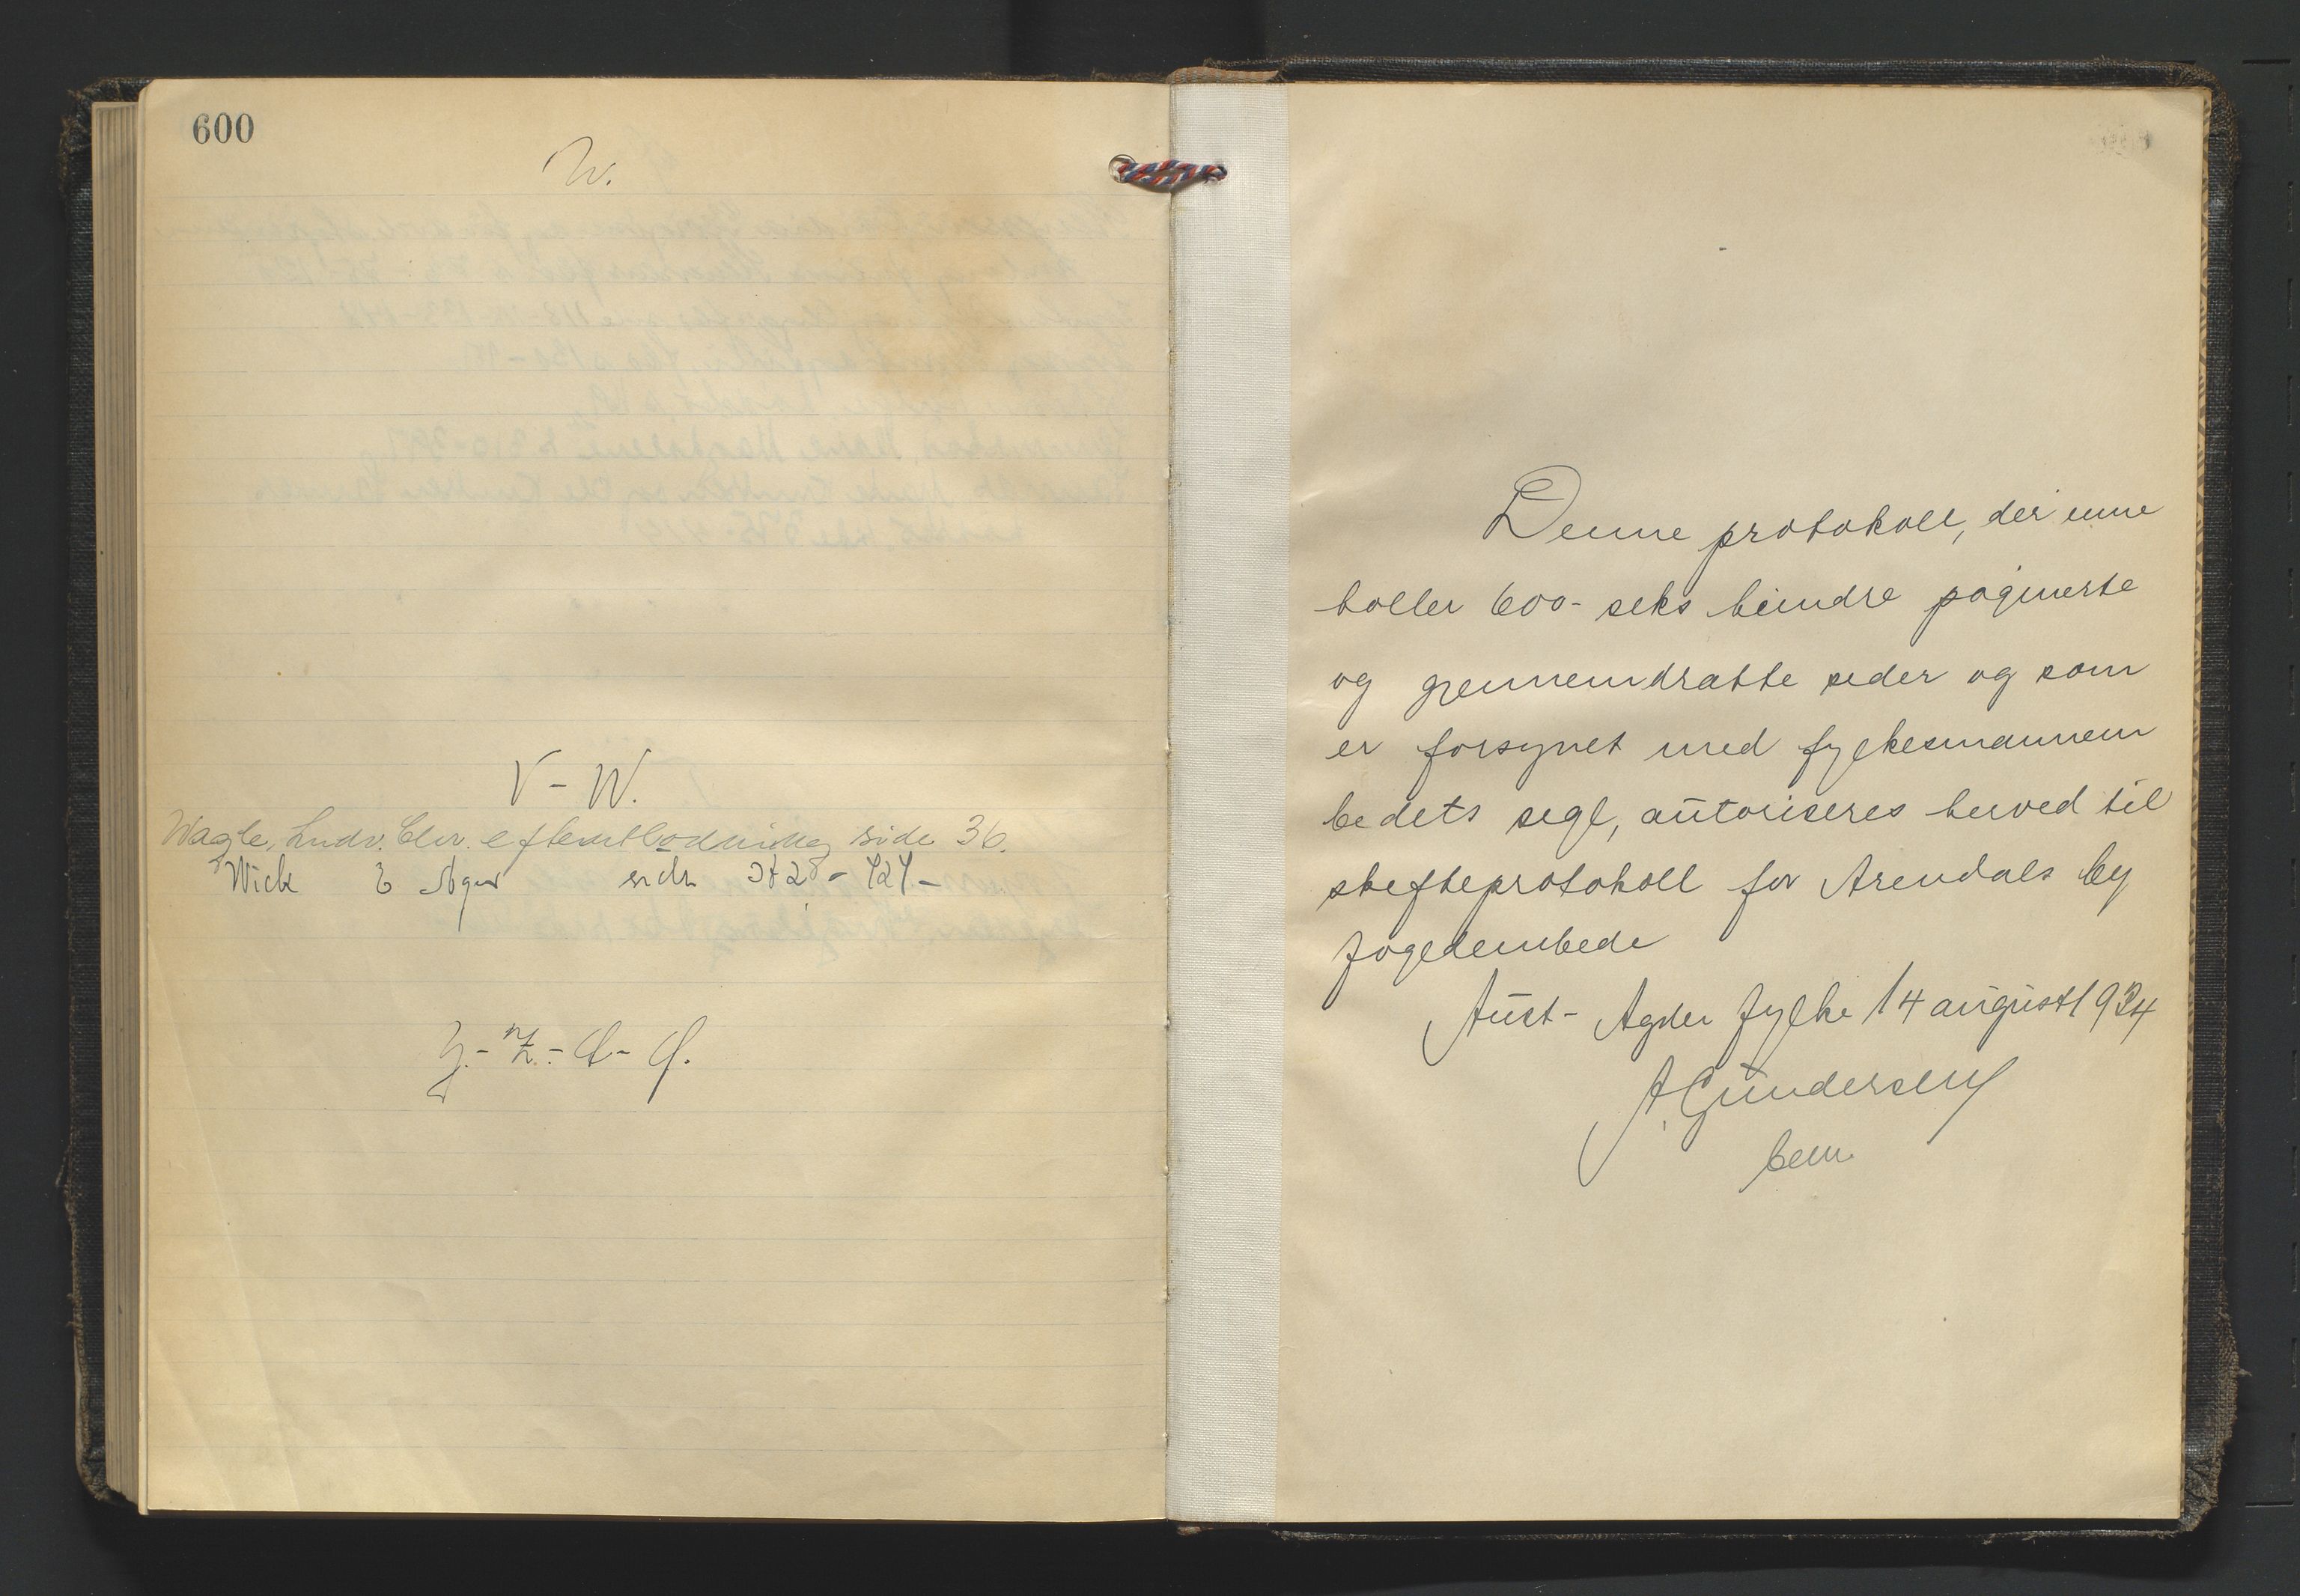 600
W.
V - W.
Wagle, Ludv. Chr. side 36.
Wick side 382 - 424 -
Y - Z - Æ - Ø.
Denne protokoll, der inne
holler 600 - seks hundre paginerte
og gjennemdratte sider og som
er forsynet med fylkesmannem
bedets segl, autoriseres herved til
skifteprotokoll for Arendals by
fogedembede
Aust - Agder fylke 14 august 1934
A Gundersen
bem.